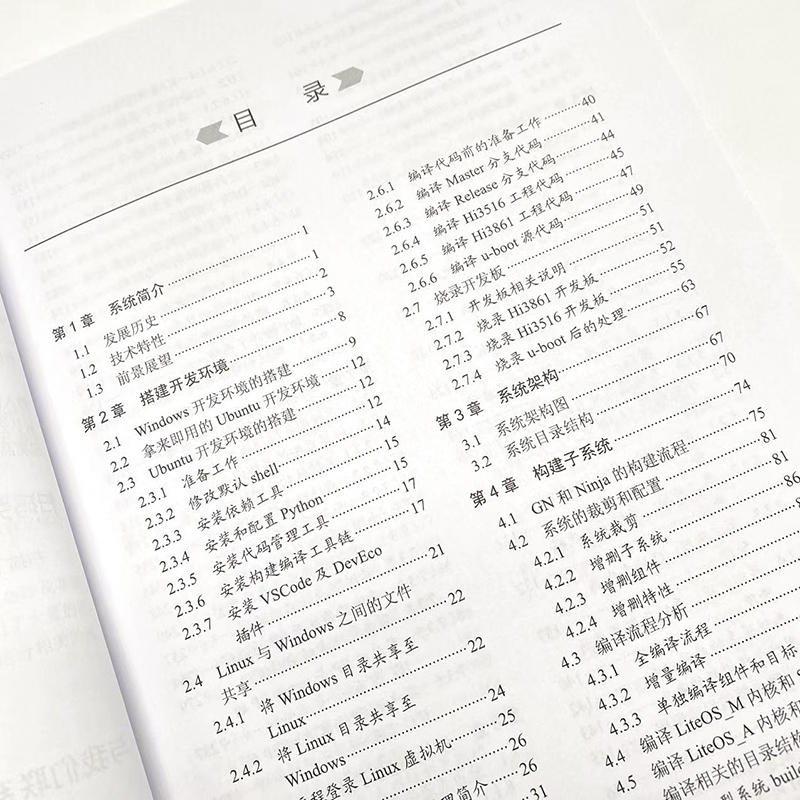 目 录
第1章 系统简介 1
1.1 发展历史 1
1.2 技术特性 2
1.3 前景展望 3
第2章 搭建开发环境 8
2.1 Windows 开发环境的搭建 9
2.2 拿来即用的 Ubuntu 开发环境 12
2.3 Ubuntu 开发环境的搭建 12
2.3.1 准备工作 12
2.3.2 修改默认 shell 14
2.3.3 安装依赖工具 15
2.3.4 安装和配置 Python 15
2.3.5 安装代码管理工具 17
2.3.6 安装构建编译工具链 17
2.3.7 安装 VSCode 及 DevEco
插件 21
2.4 Linux 与 Windows 之间的文件
共享 22
2.4.1 将 Windows 目录共享至
Linux 22
2.4.2 将 Linux 目录共享至
Windows 24
程登录 Linux 虚拟机 25
理简介 26
26
31
2.6.1 编译代码前的准备工作 40
2.6.2 编译 Master 分支代码 41
2.6.3 编译 Release 分支代码 44
2.6.4 编译 Hi3516 工程代码 45
2.6.5 编译 Hi3861 工程代码 47
2.6.6 编译 u-boot 源代码 49
2.7 烧录开发板 51
2.7.1 开发板相关说明 51
2.7.2 烧录 Hi3861 开发板 52
2.7.3 烧录 Hi3516 开发板 55
2.7.4 烧录 u-boot 后的处理 63
第3章 系统架构 67
3.1 系统架构图 67
3.2 系统目录结构 70
第4章 构建子系统 74
4.1 GN 和 Ninja 的构建流程 75
4.2 系统的裁剪和配置 81
4.2.1 系统裁剪 81
4.2.2 增删子系统 86
4.2.3 增删组件
4.2.4 增删特性
4.3 编译流程分析
4.3.1 全编译流程
4.3.2 增量编译
4.3.3 单独编译组件和目标
4.4 编译 LiteOS_M 内核和
4.5 编译 LiteOS_A 内核和
编译相关的目录结构
型系统 build